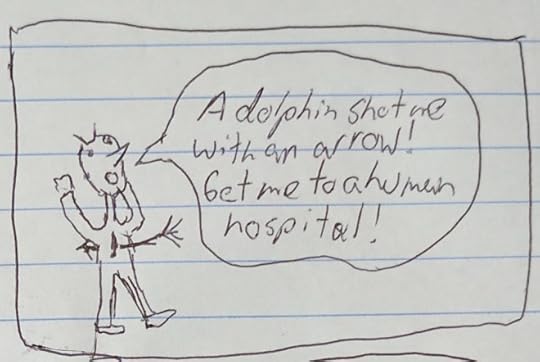 A dolphin shot me
with an arrow!
Get me to a human
hospital!